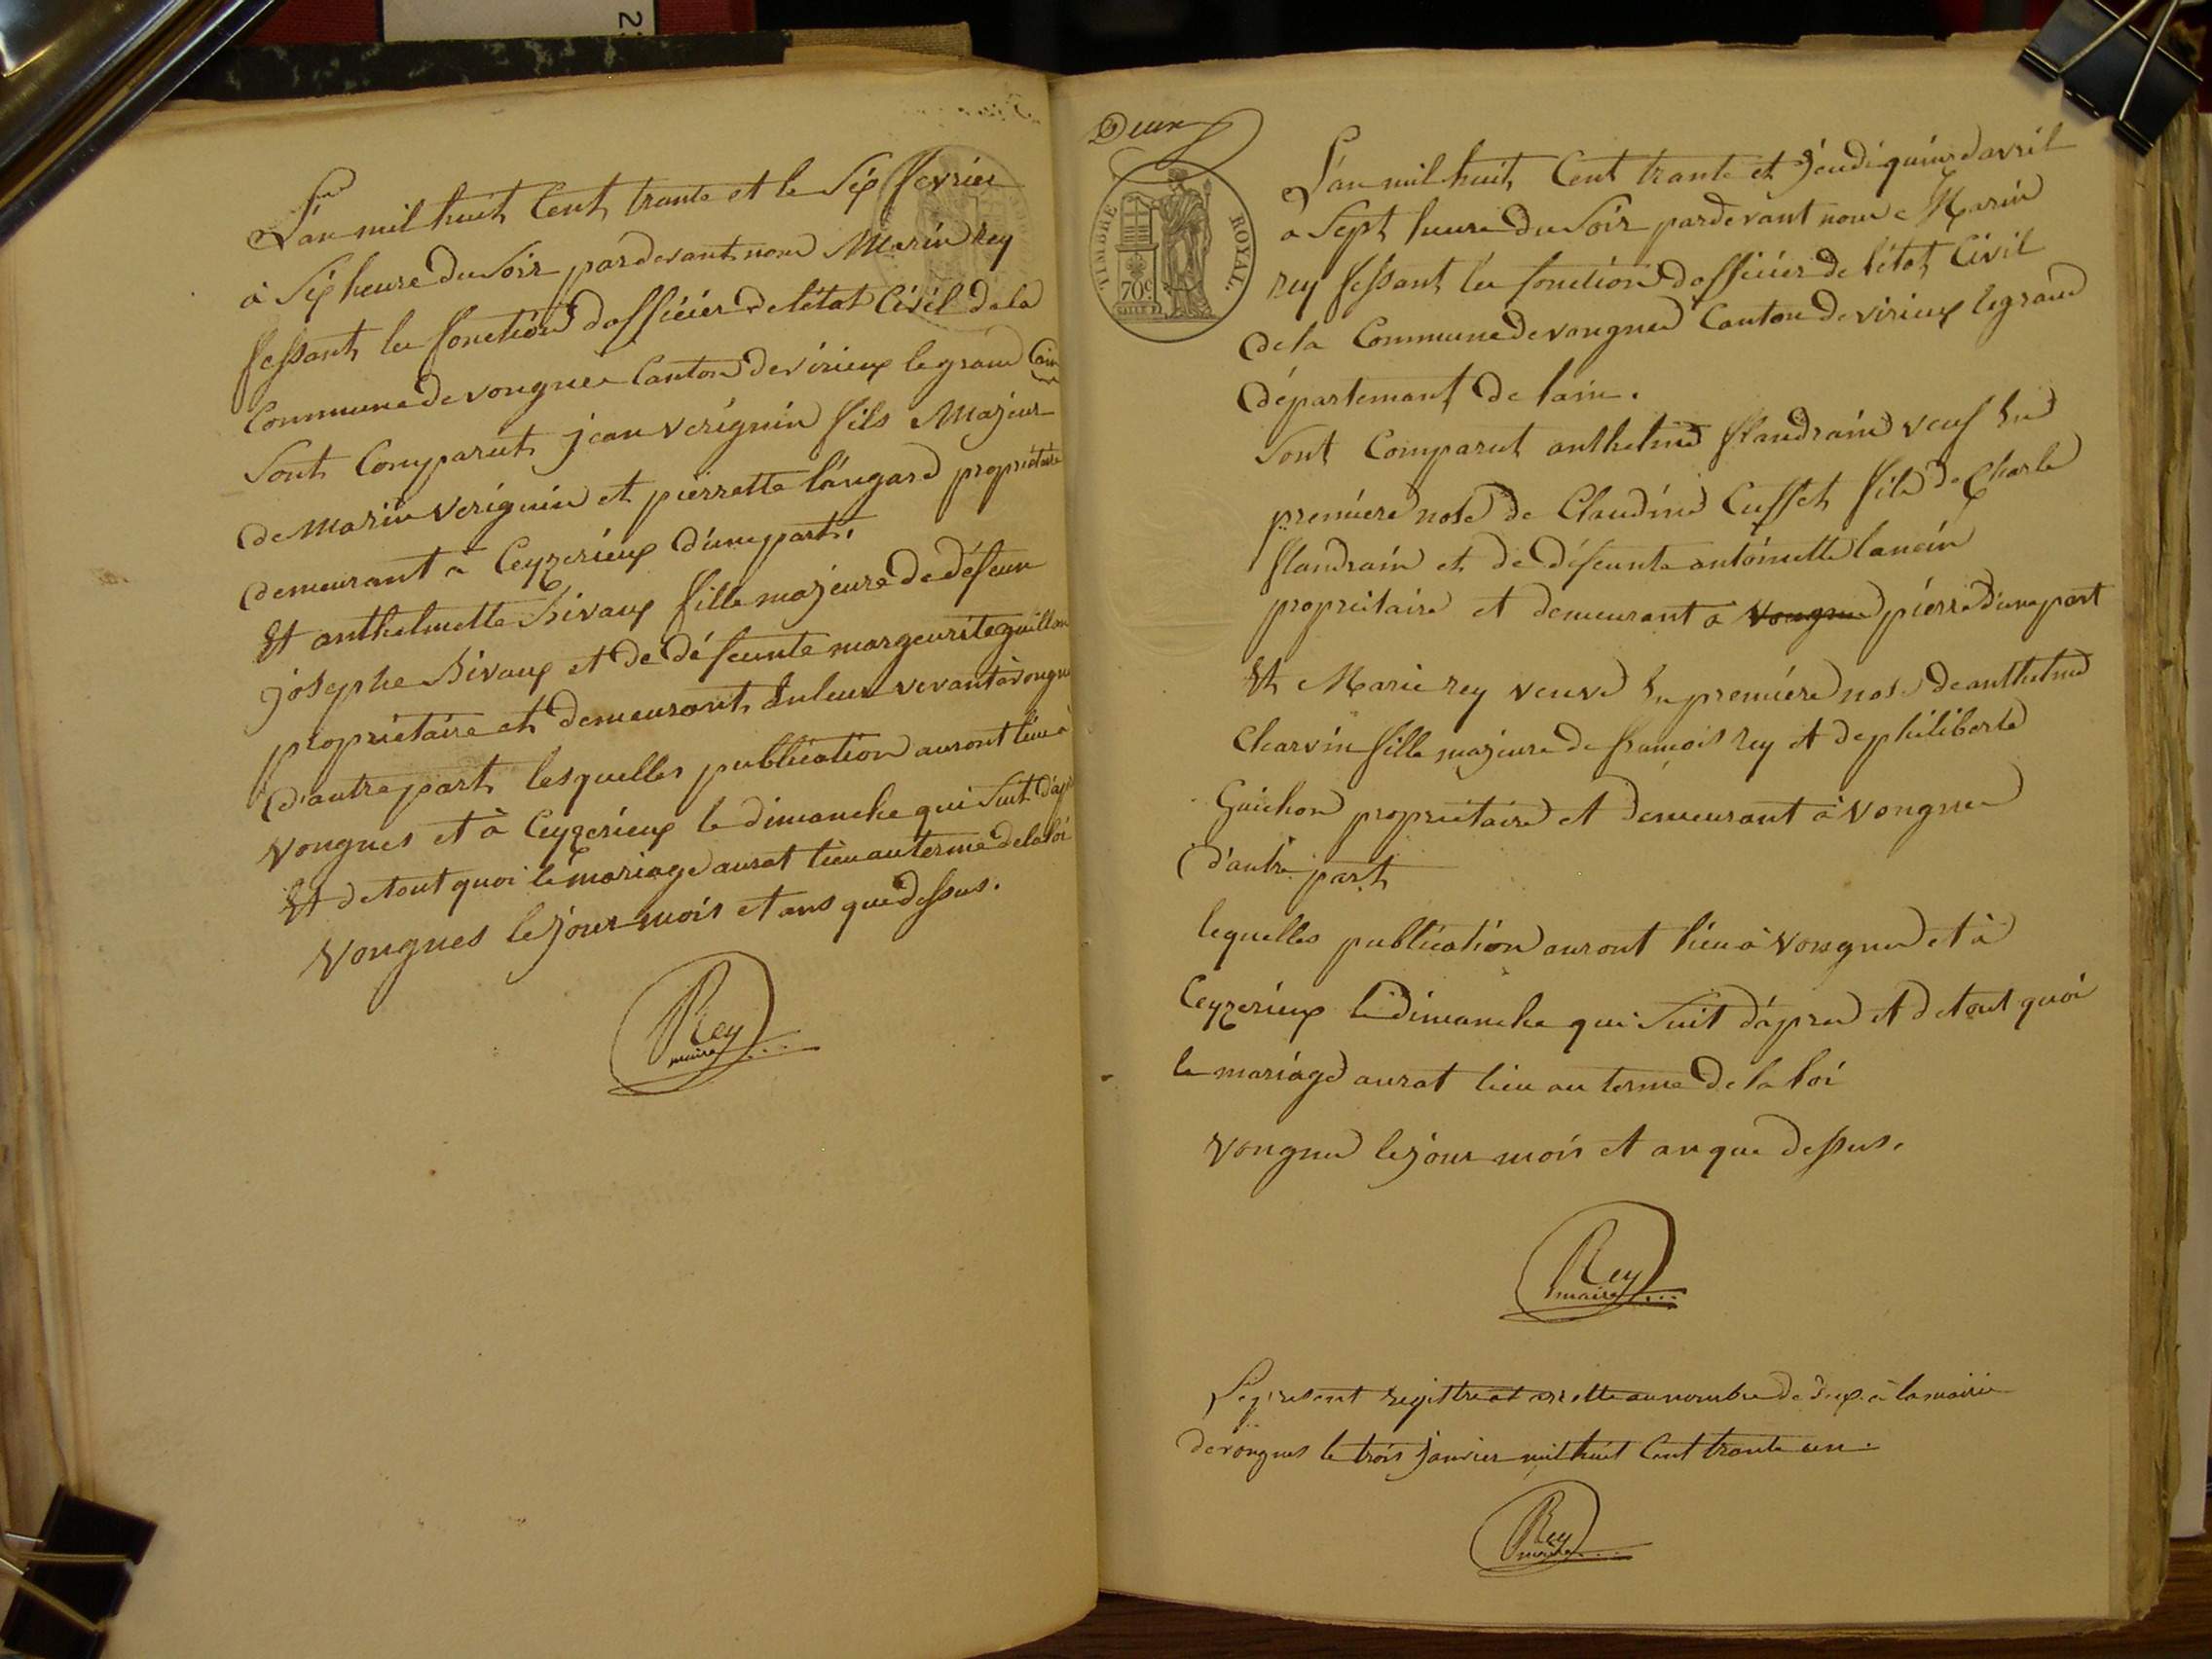 L'an mil huit Cent trante et le Six fevrier
à Six heure du Soir pardevant nous Marin Rey
fessant les fonction d'officier de l'état Civil de la
Commune de vongnes Canton de virieux le grand
Sont Comparut jean verignin fils Majeur
de Marin verignin et pierrette proprietaire
demeurant à Ceyzerieux d'une part.
Et anthelmette Bivaux fille majeure de défeun
josephe Bivaux et de défeunte margeurite guillon
propriétaire et demeurant vivant à vongnes
d'autre part lesquelles publication auront lieu à
vongnes et à Ceyzerieux le dimanche qui Suit d'ap
Et de tout quoi le mariage aurat lieu au terme de la loi
Vongnes le jour mois et ans que dessus.
Rey
maire
2
Deux
TIMBRE ROYAL.
70 c.
L'an mil huit Cent trante et jeudi quinze d'avril
à Sept heure du Soir pardevant nous Marin
rey fessant les fonction d'officier de l'état Civil
de la Commune de vongnes Canton de virieux le grand
département de l'ain.
Sont Comparut anthelme flandrain veuf En
première nose de Claudine Cusset fils de Charle
flandrain et de défeunte antoinette lancin
proprietaire et demeurant à vongnes pierre d'une part
Et Marie rey veuve En première nose de anthelme
Charvin fille majeure de francois rey et de philiberte
Guichon proprietaire et demeurant à Vongnes
d'autre part
lequelles publication auront lieu à vongnes et à
Ceyzerieux le dimanche qui Suit d'apres et de tout quoi
le mariage aurat lieu au terme de la loi
vongnes le jour mois et an que dessus.
Rey
maire
Le present registre et arrette au nombre de deux à la mairie
de vongnes le trois janvier mil huit Cent trante un.
Rey
maire